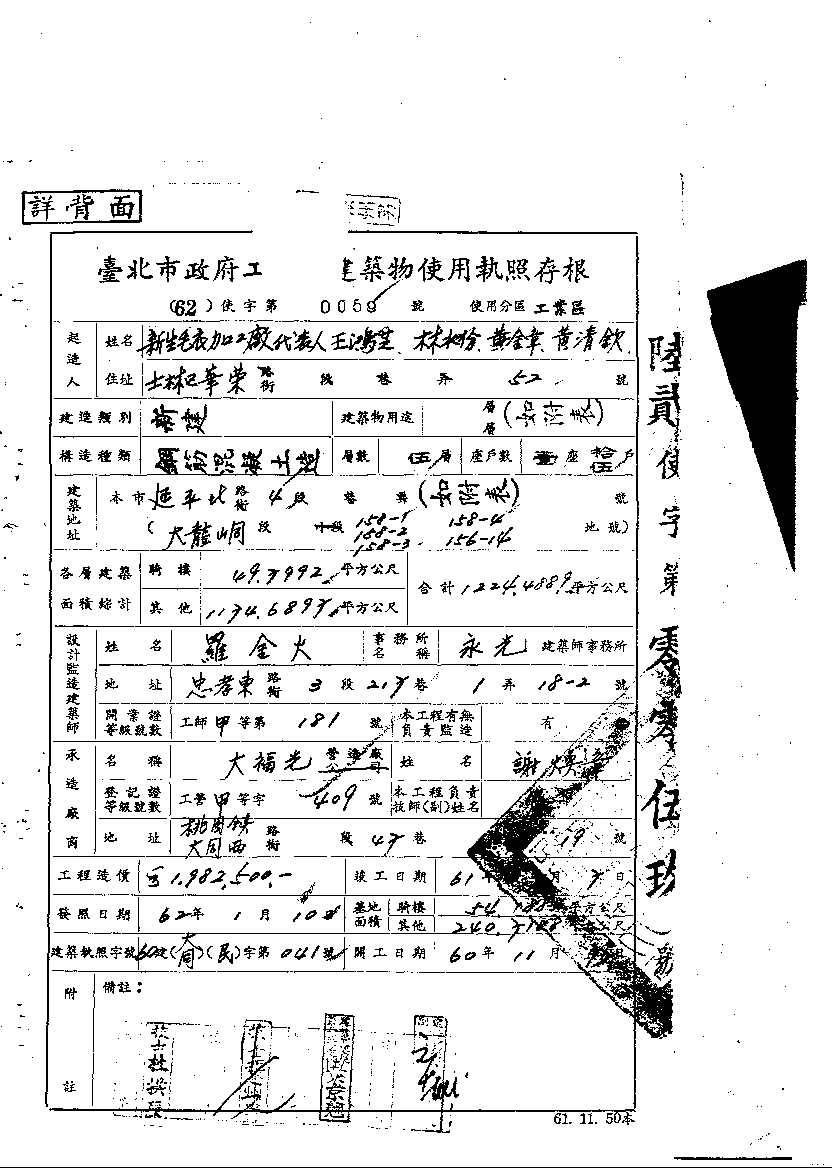 詳背面
臺北市政府工 建築物使用執照存根
(62)使字第 0059 號 使用分區 工業區
起造人 姓名 新生毛衣加工廠代表人王鴻 林 黃金章 黃清欽
住址 士林 華榮 路街 段 巷 弄 52 號
建造類別 新建 建築物用途 層層 (如附表)
構造種類 鋼筋混凝土造 層數 伍層 座戶數 壹座 拾伍戶
建築地址 本市 延平北 路街 4段 巷 弄 (如附表) 號
(大龍峒 段 段 158-1 158-2 158-3 158-4 156-14 地號)
各層建築面積綜計 騎樓 49.7992 平方公尺 合計 1224.4889 平方公尺
其他 1174.6897 平方公尺
設計監造建築師 姓名 羅金火 事務所名稱 永光 建築師事務所
地址 忠孝東 路街 3段 217巷 1弄 18-2 號
開業證等級號數 工師甲等第 181 號 本工程有無負責監造 有
承造廠商 名稱 大福光 營造廠公司 姓名 謝煥
登記證等級號數 工營甲等字 409 號 本工程負責技師(副)姓名
地址 桃園鎮大同西 路街 段 47巷 19 號
工程造價 1,982,500.- 竣工日期 61年 月 7日
發照日期 62年 1月 10日 基地面積 騎樓 54. 平方公尺
其他 240. 平方公尺
建築執照字號 60建(大同)(民)字第 041號 開工日期 60年 11月
附註 備註：
61. 11. 50本
陸貳使字第零零伍玖